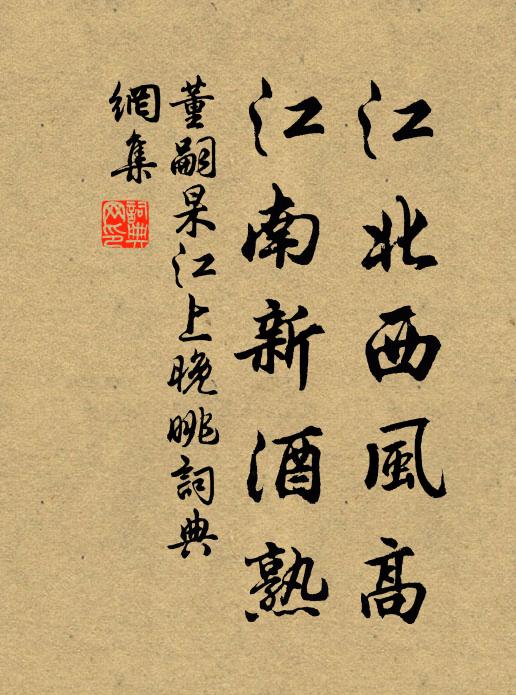 江北西風高
江南新酒熟
董嗣杲江上晚眺詞典
網集
詞典
网印